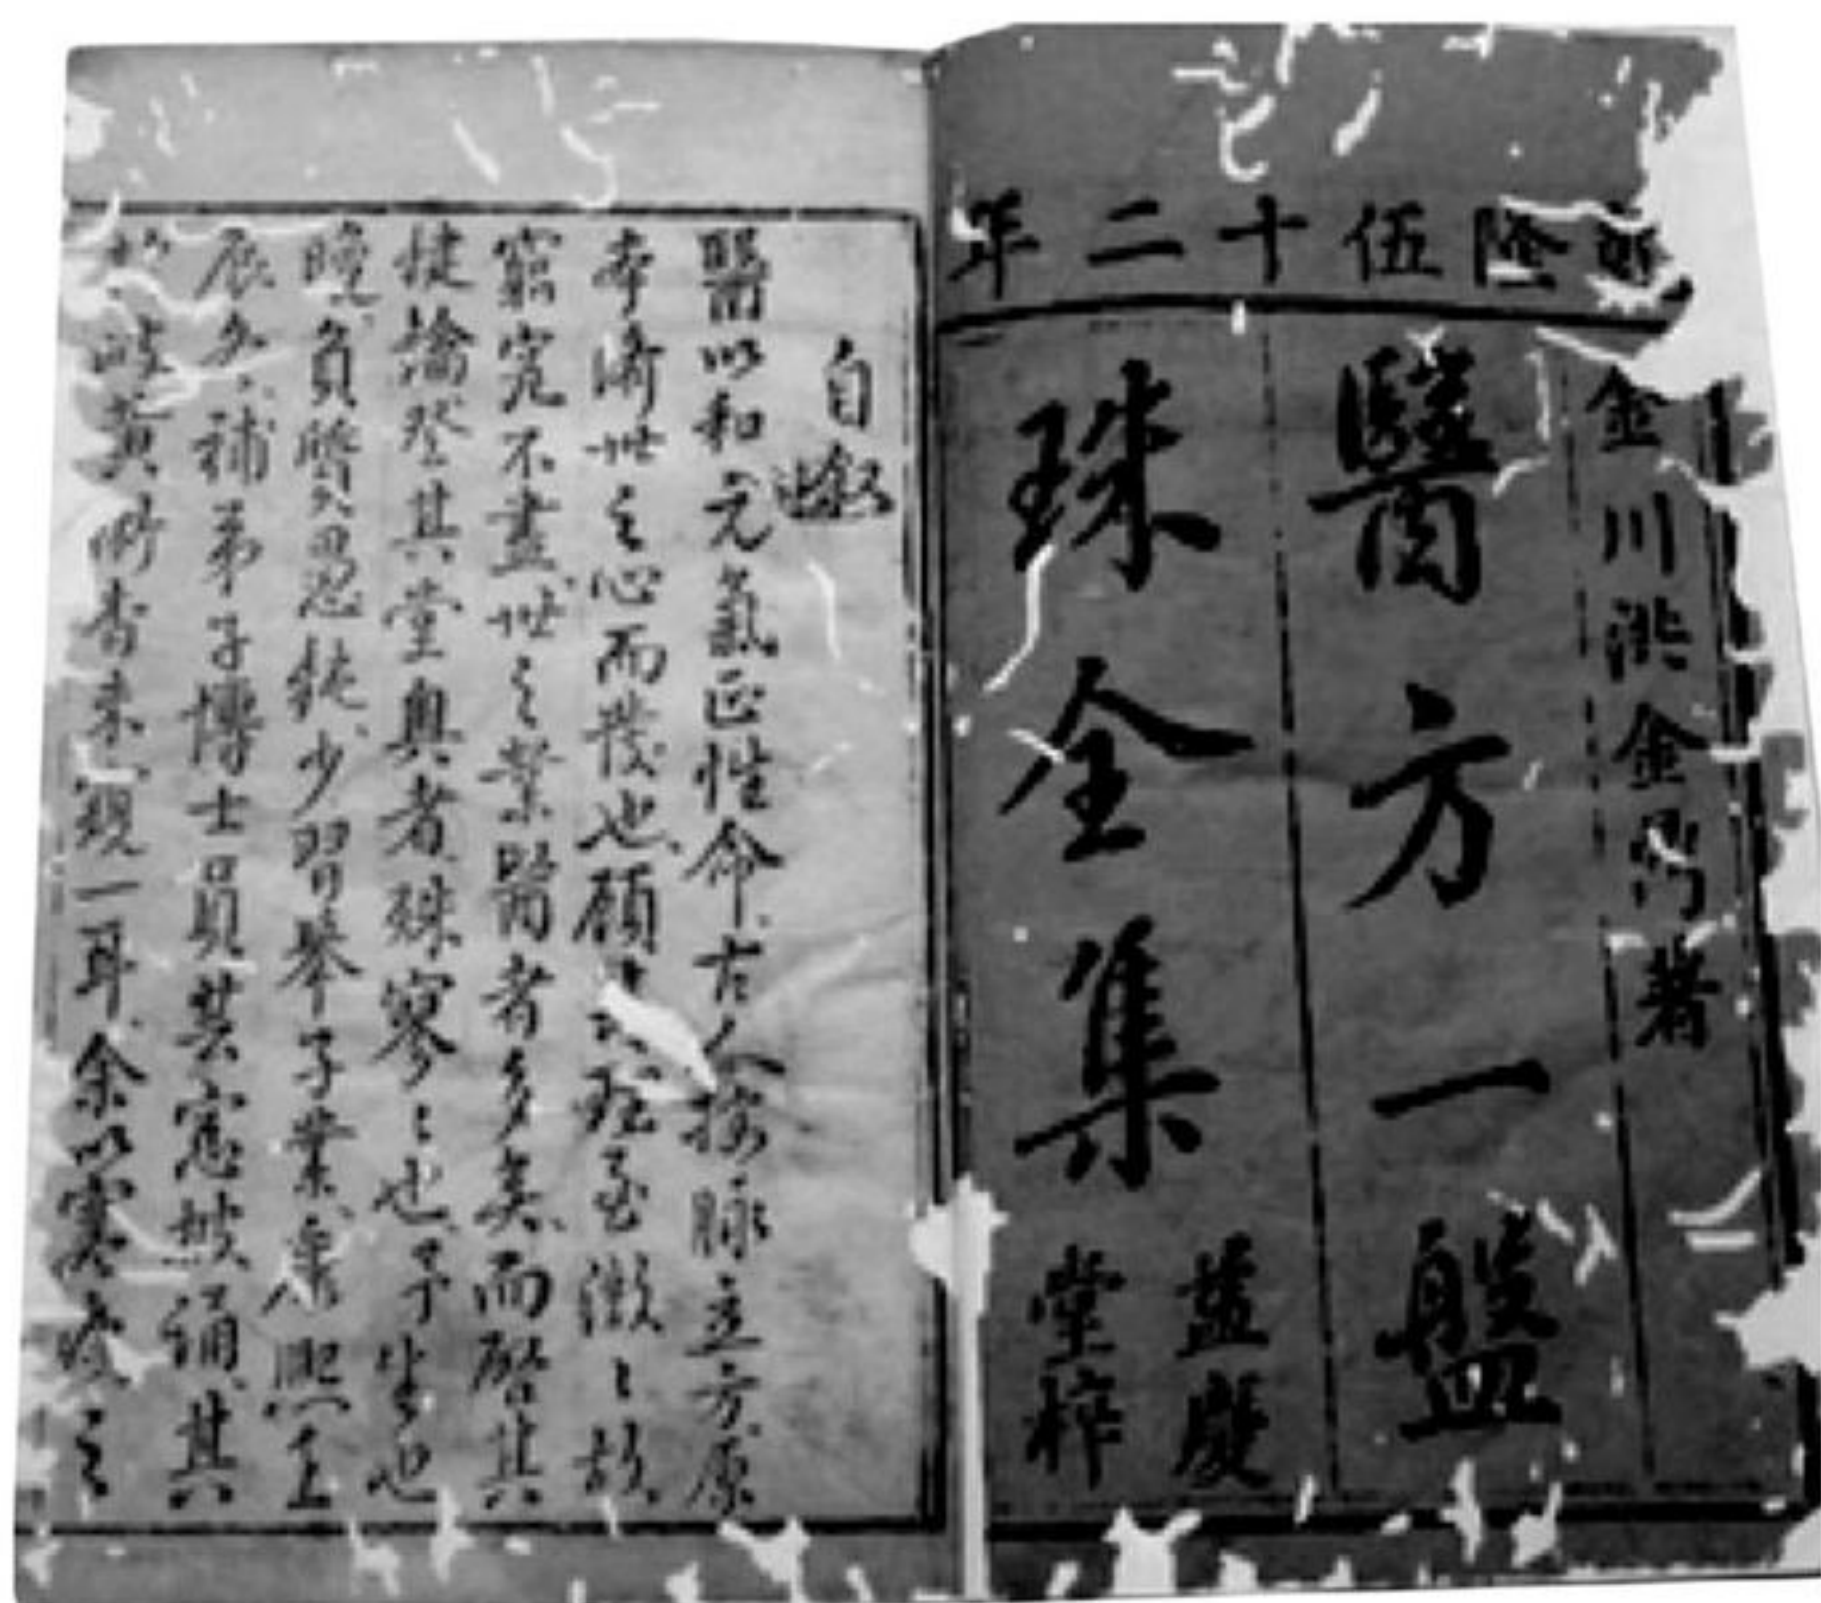 隆伍十二年
金川洪金鼎著
醫方一盤
珠全集
益慶
堂梓
自敘
醫以和元氣正性命古人按脉立方原
本濟世之心而發也顧其理至微〻故
窮究不盡世之業醫者多矣而啓其
捷擒登其堂奧者殊寥〻也予生也
晚負質忍鈍少習舉子業康熙壬
辰久補弟子博士員芸窓披誦其
岐黃所素未親一耳余以